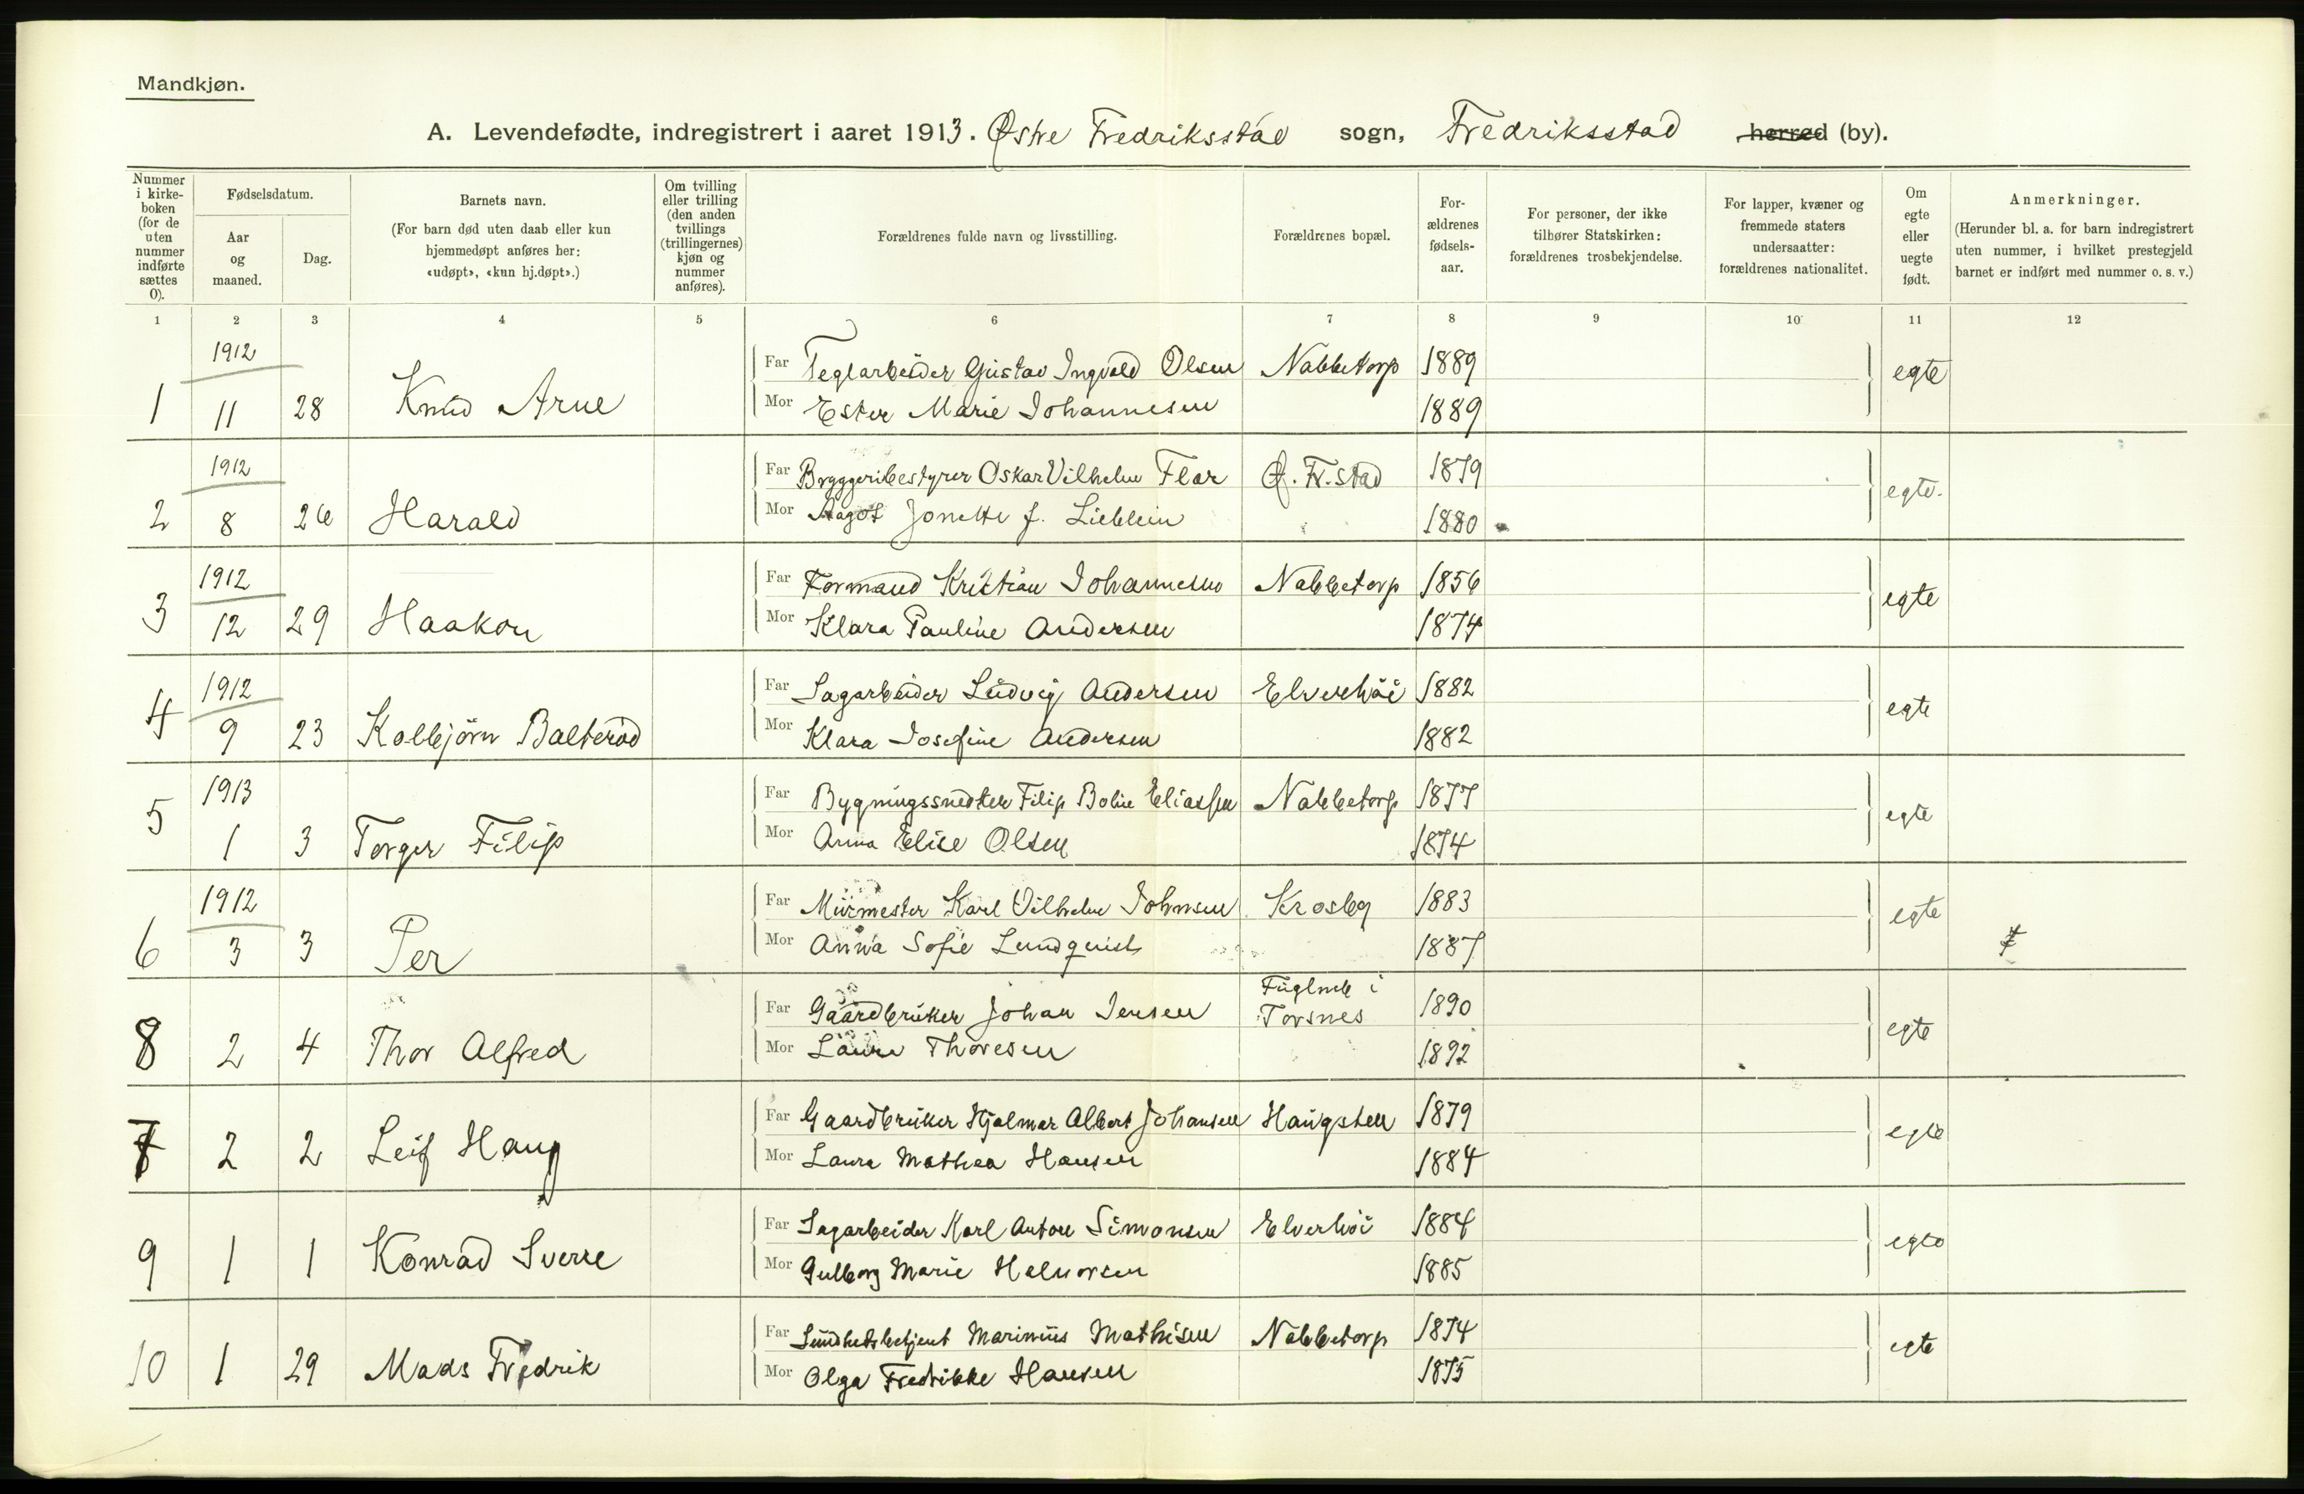 Mandkjøn.
A. Levendefødte, indregistrert i aaret 1913. Østre Fredriksstad sogn, Fredriksstad herred (by).
Nummer i kirke-boken (for de uten nummer indførte sættes 0).
Fødselsdatum.
Aar og maaned.
Dag.
Barnets navn.
(For barn død uten daab eller kun hjemmedøpt anføres her: «udøpt», «kun hj.døpt».)
Om tvilling eller trilling (den anden tvillings (trillingernes) kjøn og nummer anføres).
Forældrenes fulde navn og livsstilling.
Forældrenes bopæl.
For-ældrenes fødsels-aar.
For personer, der ikke tilhører Statskirken: forældrenes trosbekjendelse.
For lapper, kvæner og fremmede staters undersaatter: forældrenes nationalitet.
Om egte eller uegte født.
Anmerkninger.
(Herunder bl. a. for barn indregistrert uten nummer, i hvilket prestegjeld barnet er indført med nummer o. s. v.)
1 2 3 4 5 6 7 8 9 10 11 12
1912
Far Teglarbeider Gustav Ingvald Olsen Nabbetorp 1889 egte
1 11 28 Knud Arne Mor Ester Marie Johannesen 1889
1912
Far Bryggeribestyrer Oskar Vilhelm Flor Ø. Fr.stad 1879 egte.
2 8 26 Harald Mor Aagot Jonette f. Lieblein 1880
1912
Far Formand Kristian Johannesen Nabbetorp 1856 egte
3 12 29 Haakon Mor Klara Pauline Andersen 1874
1912
Far Sagarbeider Ludvig Andersen Elverhöi 1882 egte
4 9 23 Kolbjörn Balterød Mor Klara Josefine Andersen 1882
1913
Far Bygningssnedker Filip Bolin Eliassen Nabbetorp 1877 egte
5 1 3 Torger Filip Mor Anna Elise Olsen 1874
1912
Far Murmester Karl Vilhelm Johnsen Krosby 1883 egte
6 3 3 Per Mor Anna Sofie Lundquist 1887
Far Gaardbruker Johan Jensen Torsnes 1890 egte
8 2 4 Thor Alfred Mor Laura Thoresen 1892
Far Gaardbruker Hjalmar Albert Johansen Haugsten 1879 egte
7 2 2 Leif Haug Mor Laura Mathea Hansen 1884
Far Sagarbeider Karl Anton Simonsen Elverhöi 1884 egte
9 1 1 Konrad Sverre Mor Gulborg Marie Halvorsen 1885
Far Sundhetsbetjent Marinius Mathisen Nabbetorp 1874 egte
10 1 29 Mads Fredrik Mor Olga Fredrikke Hansen 1875